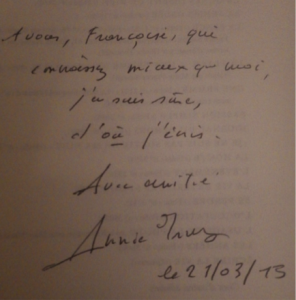 A vous, Françoise, qui
connaissez mieux que moi,
j'en suis sûre,
d'où j'écris.
Avec amitié
Annie Ernaux
le 21/03/15